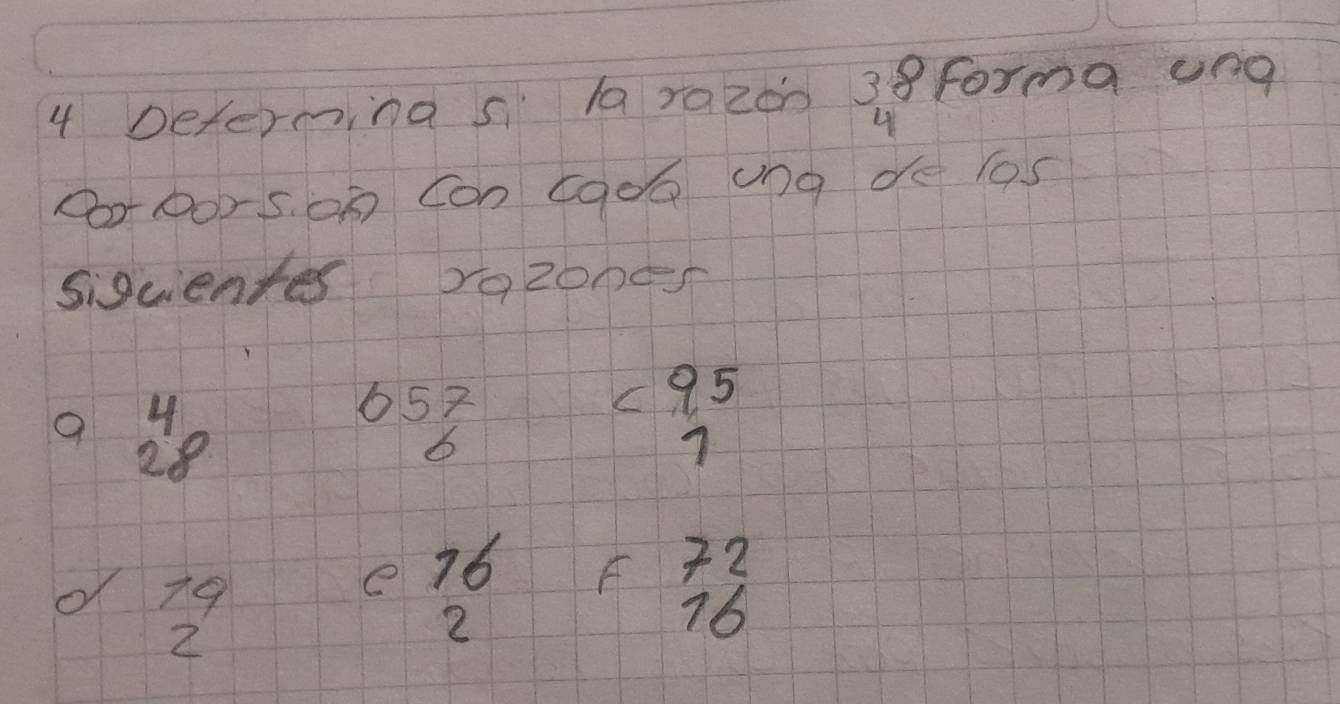 4 Determina si la razón 38 forma una
4
porporsion con cada una de las
siguientes razones
a 4 b 57 c 95
28 6 1
d 19 e 16 f 72
2 2 16